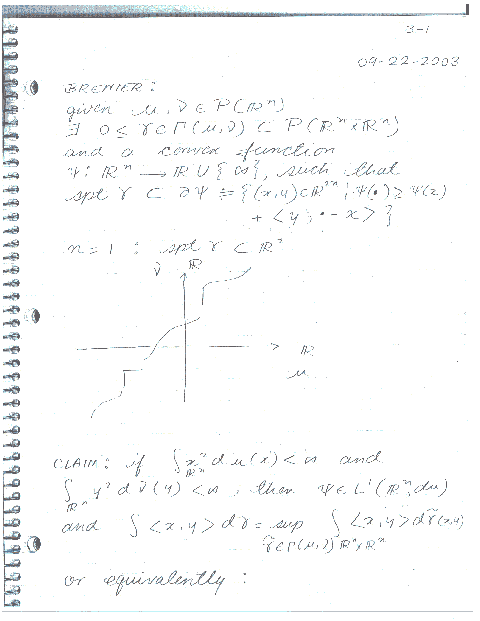 3-1
09-22-2003
BRENIER:
given μ, ν ∈ P(ℝⁿ)
∃ 0 ≤ γ ∈ Γ(μ,ν) ⊂ P(ℝⁿ×ℝⁿ)
and a convex function
ψ: ℝⁿ → ℝ ∪ {∞}, such that
spt γ ⊂ ∂ψ ≡ {(x,y) ⊂ ℝ²ⁿ | ψ(•) ≥ ψ(x)
+ <y, • - x> }
n = 1 : spt γ ⊂ ℝ²
ν ℝ
> ℝ
μ
CLAIM: if ∫_ℝⁿ x² dμ(x) < ∞ and
∫_ℝⁿ y² dν(y) < ∞, then ψ ∈ L¹(ℝⁿ, dμ)
and ∫ <x,y> dγ = sup ∫ <x,y> dγ̃(x,y)
γ̃ ∈ Γ(μ,ν) ℝⁿ×ℝⁿ
or equivalently :